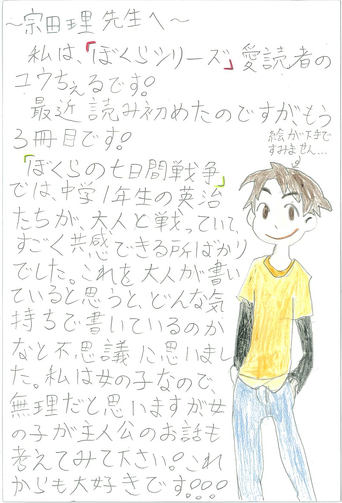 ～宗田理先生へ～
私は、「ぼくらシリーズ」愛読者の
ユウちぇるです。
最近読み初めたのですが、もう
3冊目です。
絵が下手で
すみません…
「ぼくらの七日間戦争」
では、中学1年生の英治
たちが、大人と戦っていて、
すごく共感できる所ばかり
でした。これを大人が書い
ていると思うと、どんな気
持ちで書いているのか
なと不思議に思いまし
た。私は女の子なので、
無理だと思いますが女
の子が主人公のお話も
考えてみて下さい!これ
からも大好きです!!!